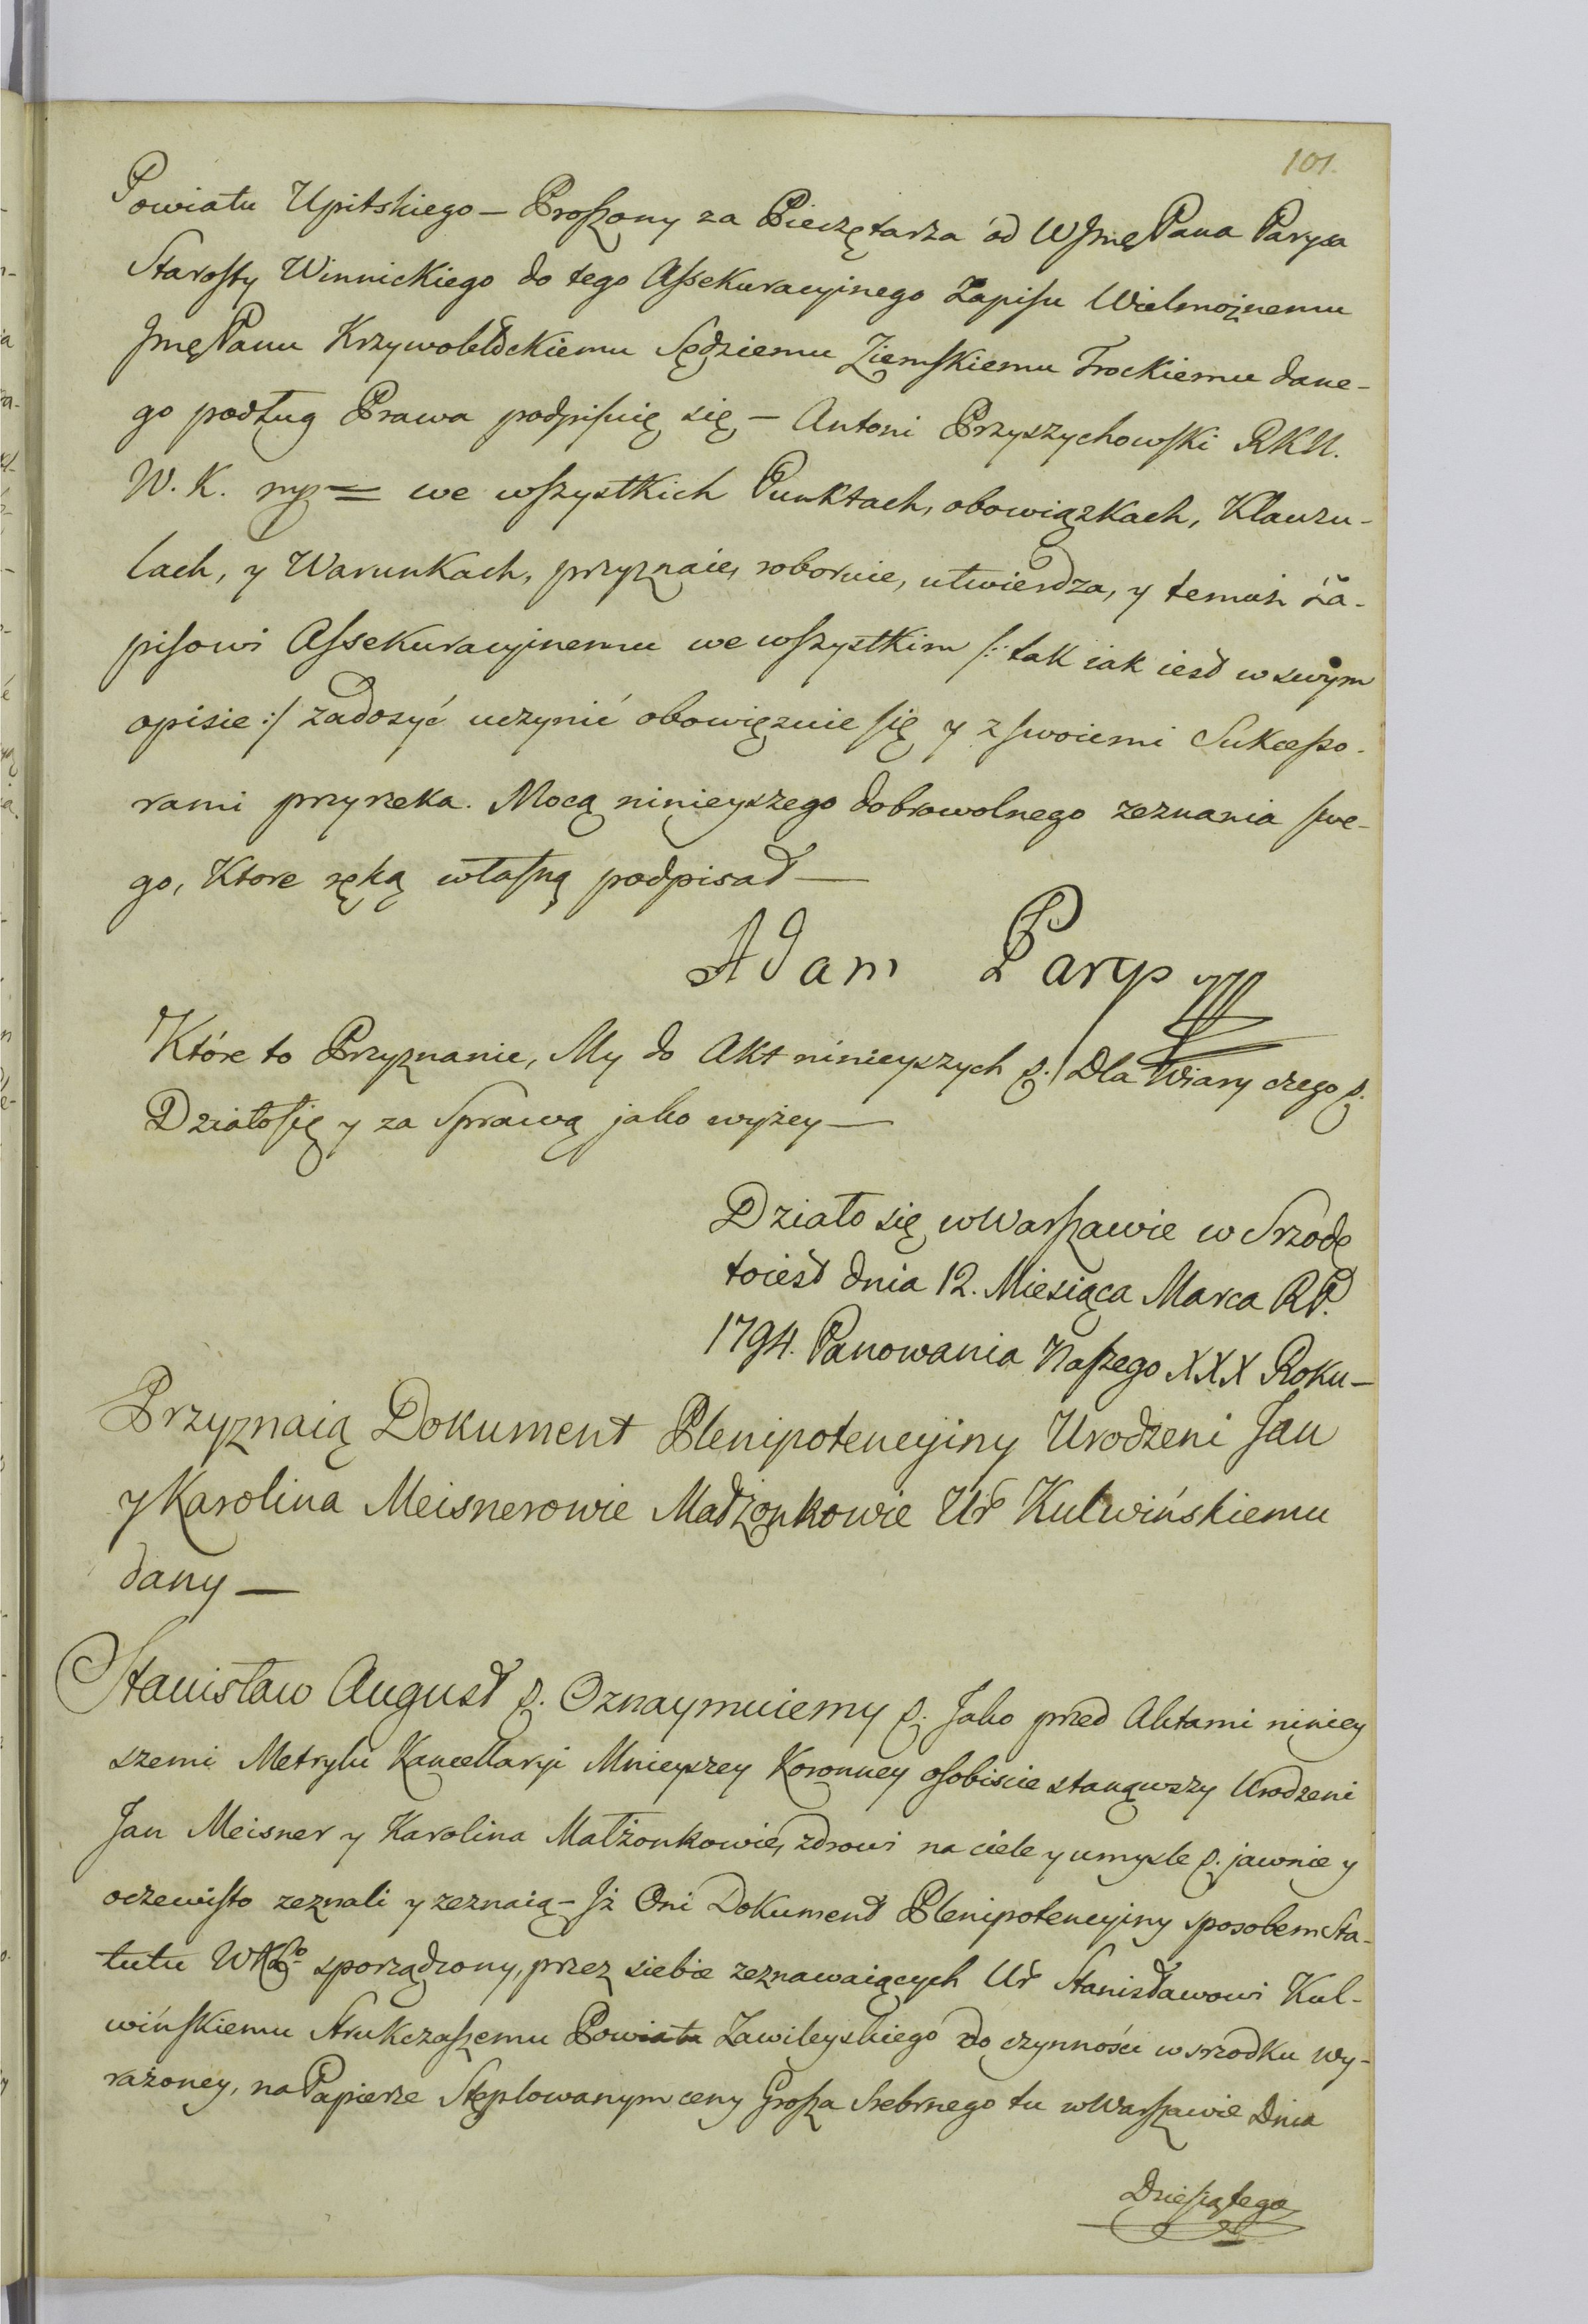 101.
Powiatu Upitskiego – Proszony za Pieczętarza od WJmę Pana Parysa
Starosty Winnickiego do tego Assekuracyinego Zapisu Wielmożnemu
Jmę Panu Krzywobłockiemu Sędziemu Ziemskiemu Trockiemu dane-
go podług Prawa podpisuię się – Antoni Przyszychowski RKN.
W. K. mp = we wszystkich Punktach, obowiązkach, Klauzu-
lach, y Warunkach, przyznaie, roboruie, utwierdza, y temuż Za-
pisowi Assekuracyinemu we wszystkim /: tak iak iest w swym
opisie :/ zadosyć uczynić obowięzuie się y z swoiemi Sukcesso-
rami przyrzeka. Mocą ninieyszego dobrowolnego zeznania swe-
go, Ktore ręką własną podpisał —
Adam Parys mp
Które to Przyznanie, My do Akt ninieyszych p./ Dla Wiary czego p.
Działo się y za Sprawą jako wyżey —
Działo się w Warszawie w Srzodę
toiest dnia 12. Miesiąca Marca RP.
1794. Panowania Naszego XXX Roku –
Przyznaią Dokument Plenipotencyiny Urodzeni Jan
y Karolina Meisnerowie Małżonkowie Ur Kulwińskiemu
dany —
Stanisław August p. Oznaymuiemy p. Jako przed Aktami niniey
szemi Metryki Kancellaryi Mnieyszey Koronney osobiscie stanąwszy Urodzeni
Jan Meisner y Karolina Małżonkowie, zdrowi na ciele y umysle p. jawnie y
oczewisto zeznali y zeznaią – Iż Oni Dokument Plenipotencyiny sposobem Sta-
tutu WXLo sporządzony, przez siebie zeznawaiących Ur Stanisławowi Kul-
wińskiemu Strukczaszemu Powiatu Zawileyskiego do czynności w srzodku wy-
rażoney, na Papierze Stęplowanym ceny Grosza Srebrnego tu w Warszawie Dnia
Dziesiątego